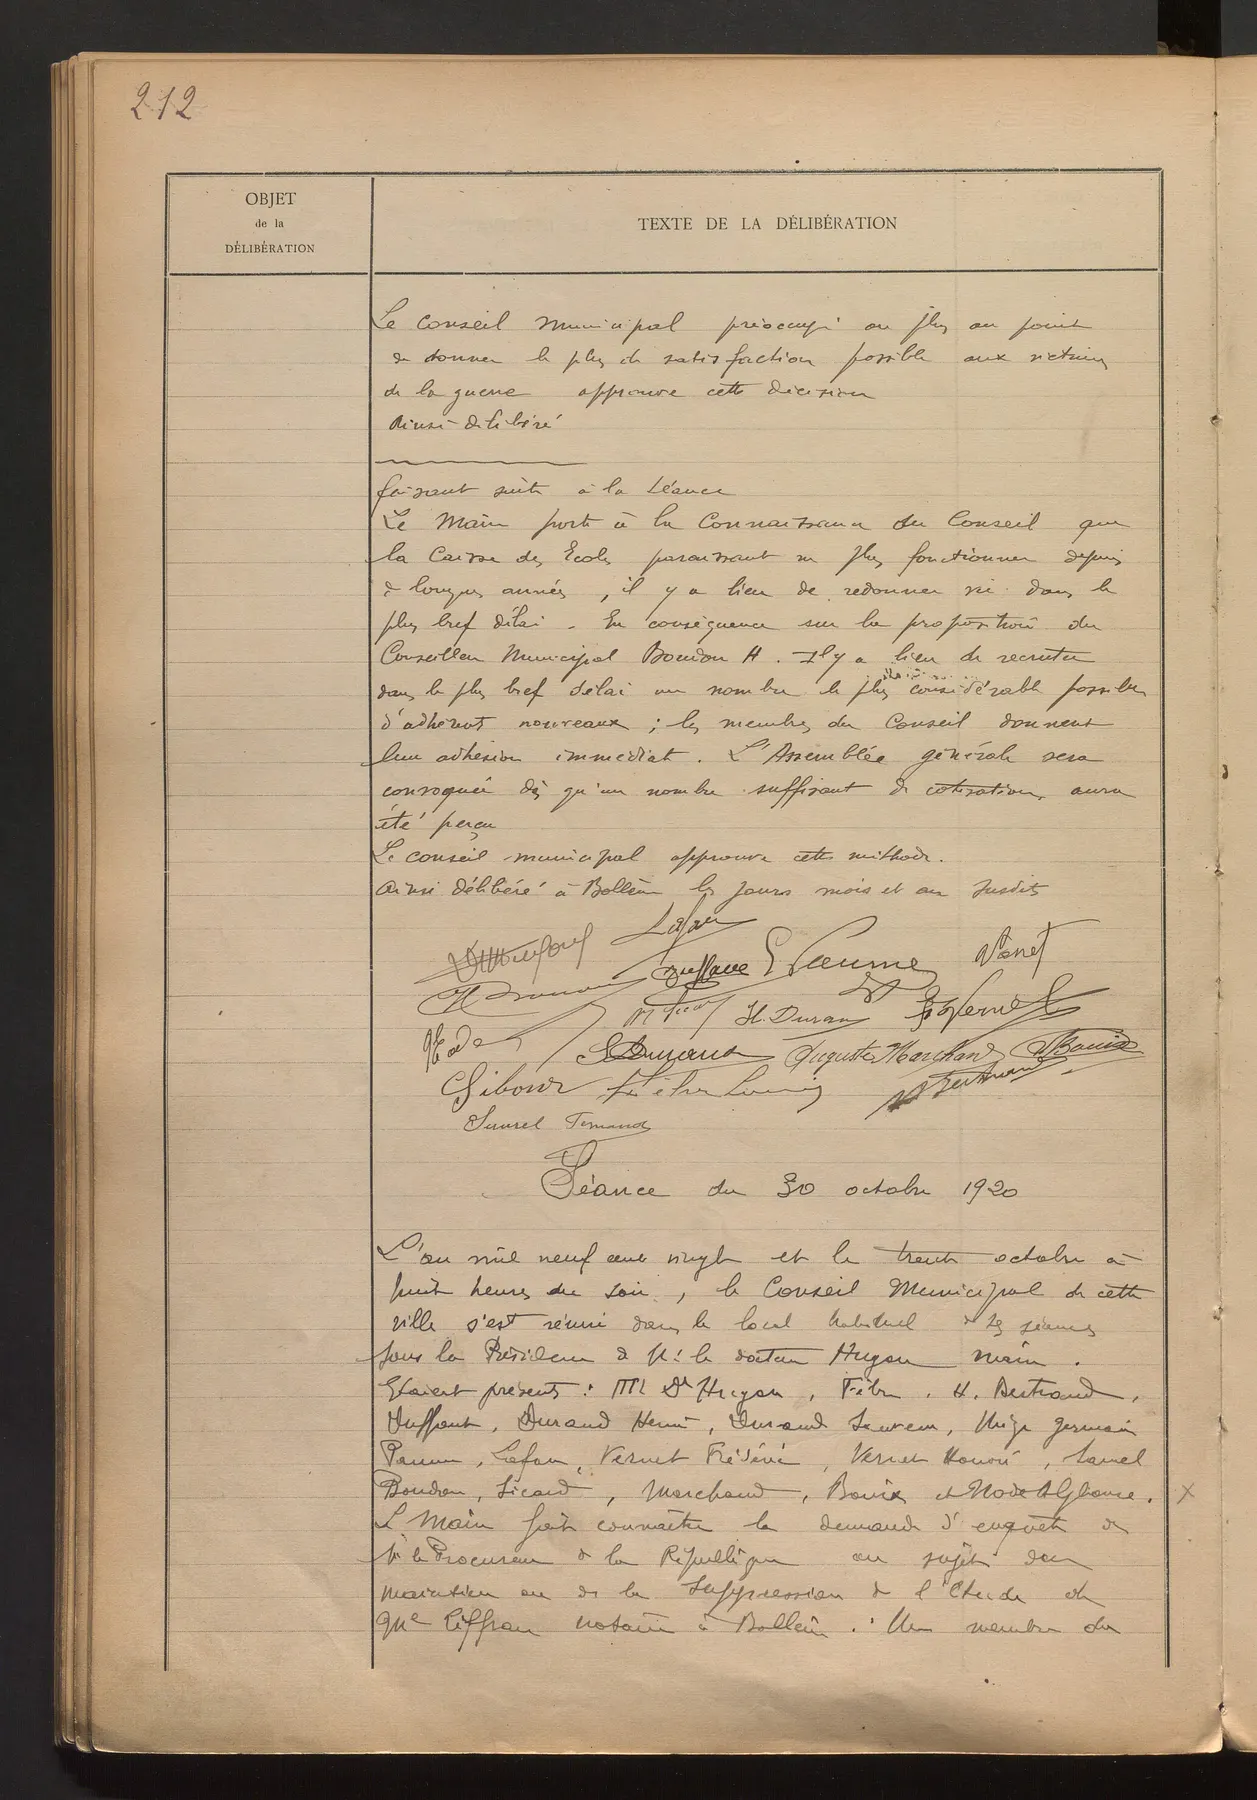 212
OBJET
de la
DÉLIBÉRATION
TEXTE DE LA DÉLIBÉRATION
Le Conseil Municipal préocupé au plus au point
de donner le plus de satisfaction possible aux victimes
de la guerre approuve cette décision
Ainsi délibéré
faisant suite à la séance
Le Maire porte à la Connaissance du Conseil que
la Caisse des Ecoles paraissant ne plus fonctionner depuis
de longues années, il y a lieu de redonner vie dans le
plus bref délai. En conséquence sur la proposition du
Conseiller Municipal Boudon H. Il y a lieu de recruter
dans le plus bref délai un nombre le plus considérable possible
d'adhérents nouveaux ; les membres du Conseil donnent
leur adhésion immédiate. L'Assemblée générale sera
convoquée dès qu'un nombre suffisant de cotisations aura
été perçu
Le conseil municipal approuve cette méthode.
Ainsi délibéré à Bollène les jours mois et an susdits
Lafau
Duffaut
H. Durand
F. Vernet
L. Durand Auguste Marchand Bouix
Fèbre Louis H Bertrand
Saurel Fernand
Séance du 30 octobre 1920
L'an mil neuf cent vingt et le trente octobre à
huit heures du soir, le Conseil Municipal de cette
ville s'est réuni dans le local habituel de ses séances
sous la Présidence de M. le docteur Hugon maire.
Etaient présents : MM Dr Hugon, Fèbre, H. Bertrand,
Duffaut, Durand Henri, Durand Laurent, germain
Lafau, Vernet Frédéric, Vernet Honoré, Saurel
Boudon, Sicard, Marchand, Bouix et Node Alphonse. X
Le Maire fait connaître la demande d'enquête de
M. le Procureur de la République au sujet du
maintien ou de la suppression de l'Etude de
Me Liffran notaire à Bollène. Un membre du